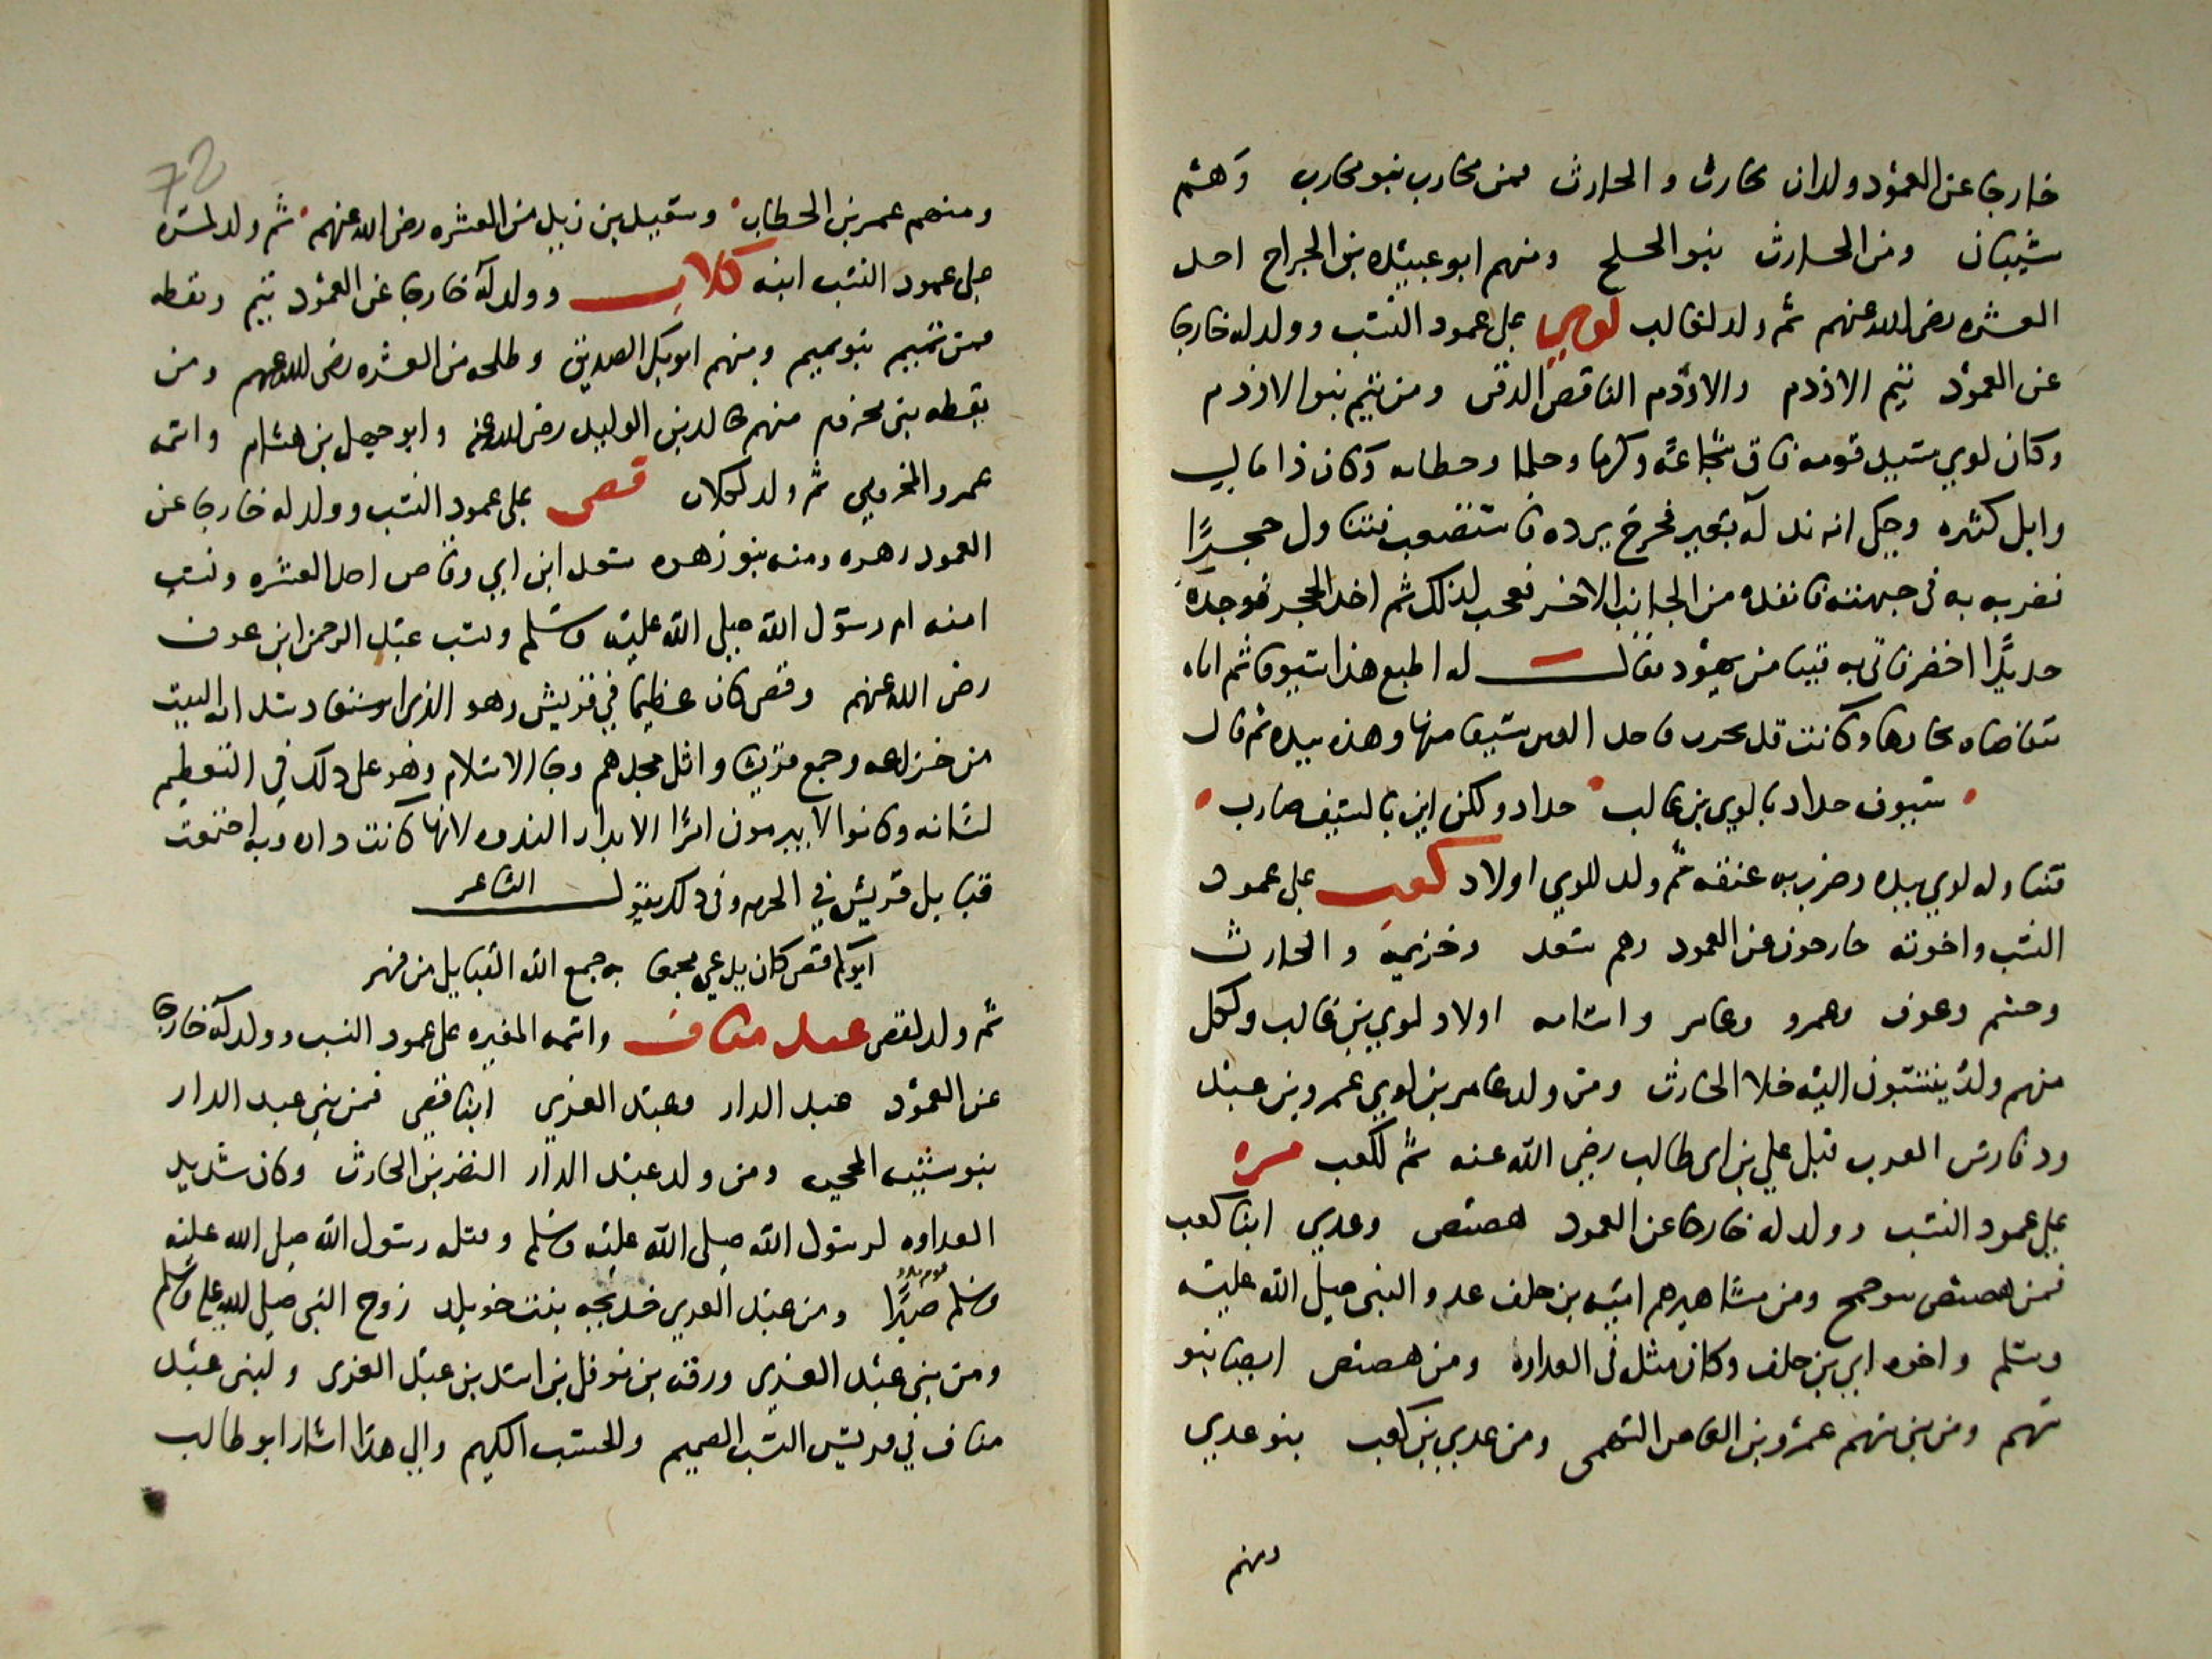 خارجا عن العمود ولدان محارب والحارث فمن محارب بنو محارب وهم
شيبان ومن الحارث بنو الخلج ومنهم ابو عبيدة بن الجراح احد
العشره رضي الله عنهم ثم ولد لغالب لوي على عمود النسب وولد له خارجا
عن العمود تيم الادرم والادرم الناقص الذقن ومن تيم بنو الادرم
وكان لوي سيد قومه فاق شجاعة وكرما وحلما وخطابه وكان ذا مال
وابل كثيره وحكي انه ند له بعير فخرج يرده فاستصعب فتناول حجرًا
فضربه به في جبهته فانفذه من الجانب الاخر فعجب لذلك ثم اخذ الحجر فوجده
حديدًا اخضر فاتى به قينا من يهود فقال له اطبع هذا سيوفا ثم اتاه
يتقاضاه بها وكانت قد فاخذ القين سيفا منها وهزه بيده ثم قال
سيوف حداد يا لوي بن غالب حداد ولكن اين بالسيف ضارب
فتناوله لوي بيده وضرب به عنقه ثم ولد للوي اولاد كعب على عمود
النسب واخوته خارجون عن العمود وهم سعد وخزيمه والحارث
وجشم وعوف وعمرو وعامر واسامه اولاد لوي بن غالب ولكل
منهم ولد ينتسبون اليه خلا الحارث ومن ولد عامر بن لوي عمرو بن عبد
ود فارس العرب قتل علي بن ابي طالب رضي الله عنه ثم لكعب مره
على عمود النسب وولد له خارجا عن العمود هصيص وعدي ابنا كعب
فمن هصيص بنو جمح ومن مشاهيرهم اميه بن خلف عدو النبي صلى الله عليه
وسلم واخوه ابي بن خلف وكان مثله في العداوه ومن هصيص ايضا بنو
سهم ومن بني سهم عمرو بن العاص السهمي ومن عدي بن كعب بنو عدي
ومنهم
72
ومنهم عمر بن الخطاب وسعيد بن زيد من العشره رضي الله عنهم ثم ولد لمره
على عمود النسب ابنه كلاب وولد له خارجا عن العمود تيم ويقظه
فمن تيم بنو تميم ومنهم ابو بكر الصديق وطلحه من العشره رضي الله عنهم ومن
يقظه بني مخزوم منهم خالد بن الوليد رضي الله عنه وابو جهل بن هشام واسمه
عمرو المخزومي ثم ولد لكلاب قصي على عمود النسب وولد له خارجا عن
العمود زهره ومنه بنو زهره سعد ابن ابي وقاص احد العشره ونسب
امنه ام رسول الله صلى الله عليه وسلم ونسب عبد الرحمن ابن عوف
رضي الله عنهم وقصي كان عظيما في قريش وهو الذي سدانه البيت
من خزاعه وجمع قريشا واثل مجدهم وجا الاسلام وهو على ذلك في التعظيم
لشانه وكانوا لا يبرمون امرًا الا بدار الندوه لانها كانت داره وبه اجتمعت
قبايل قريش في الحرم وفي ذلك يقول الشاعر
ابوكم قصي كان يدعى مجمعا به جمع الله القبايل من فهر
ثم ولد لقصي عبد مناف واسمه المغيره على عمود النسب وولد له خارجا
عن العمود عبد الدار وعبد العزي ابنا قصي فمن بني عبد الدار
بنو شيبه الحجبه ومن ولد عبد الدار النضر بن الحارث وكان شديد
العداوه لرسول الله صلى الله عليه وسلم وقتله رسول الله صلى الله عليه
وسلم صبرًا يوم بدر ومن عبد العزي خديجه بنت خويلد زوج النبي صلى الله عليه وسلم
ومن بني عبد العزي ورقه بن نوفل بن اسد بن عبد العزى ولبني عبد
مناف في قريش النسب الصميم والحسب الكريم والى هذا اشار ابو طالب